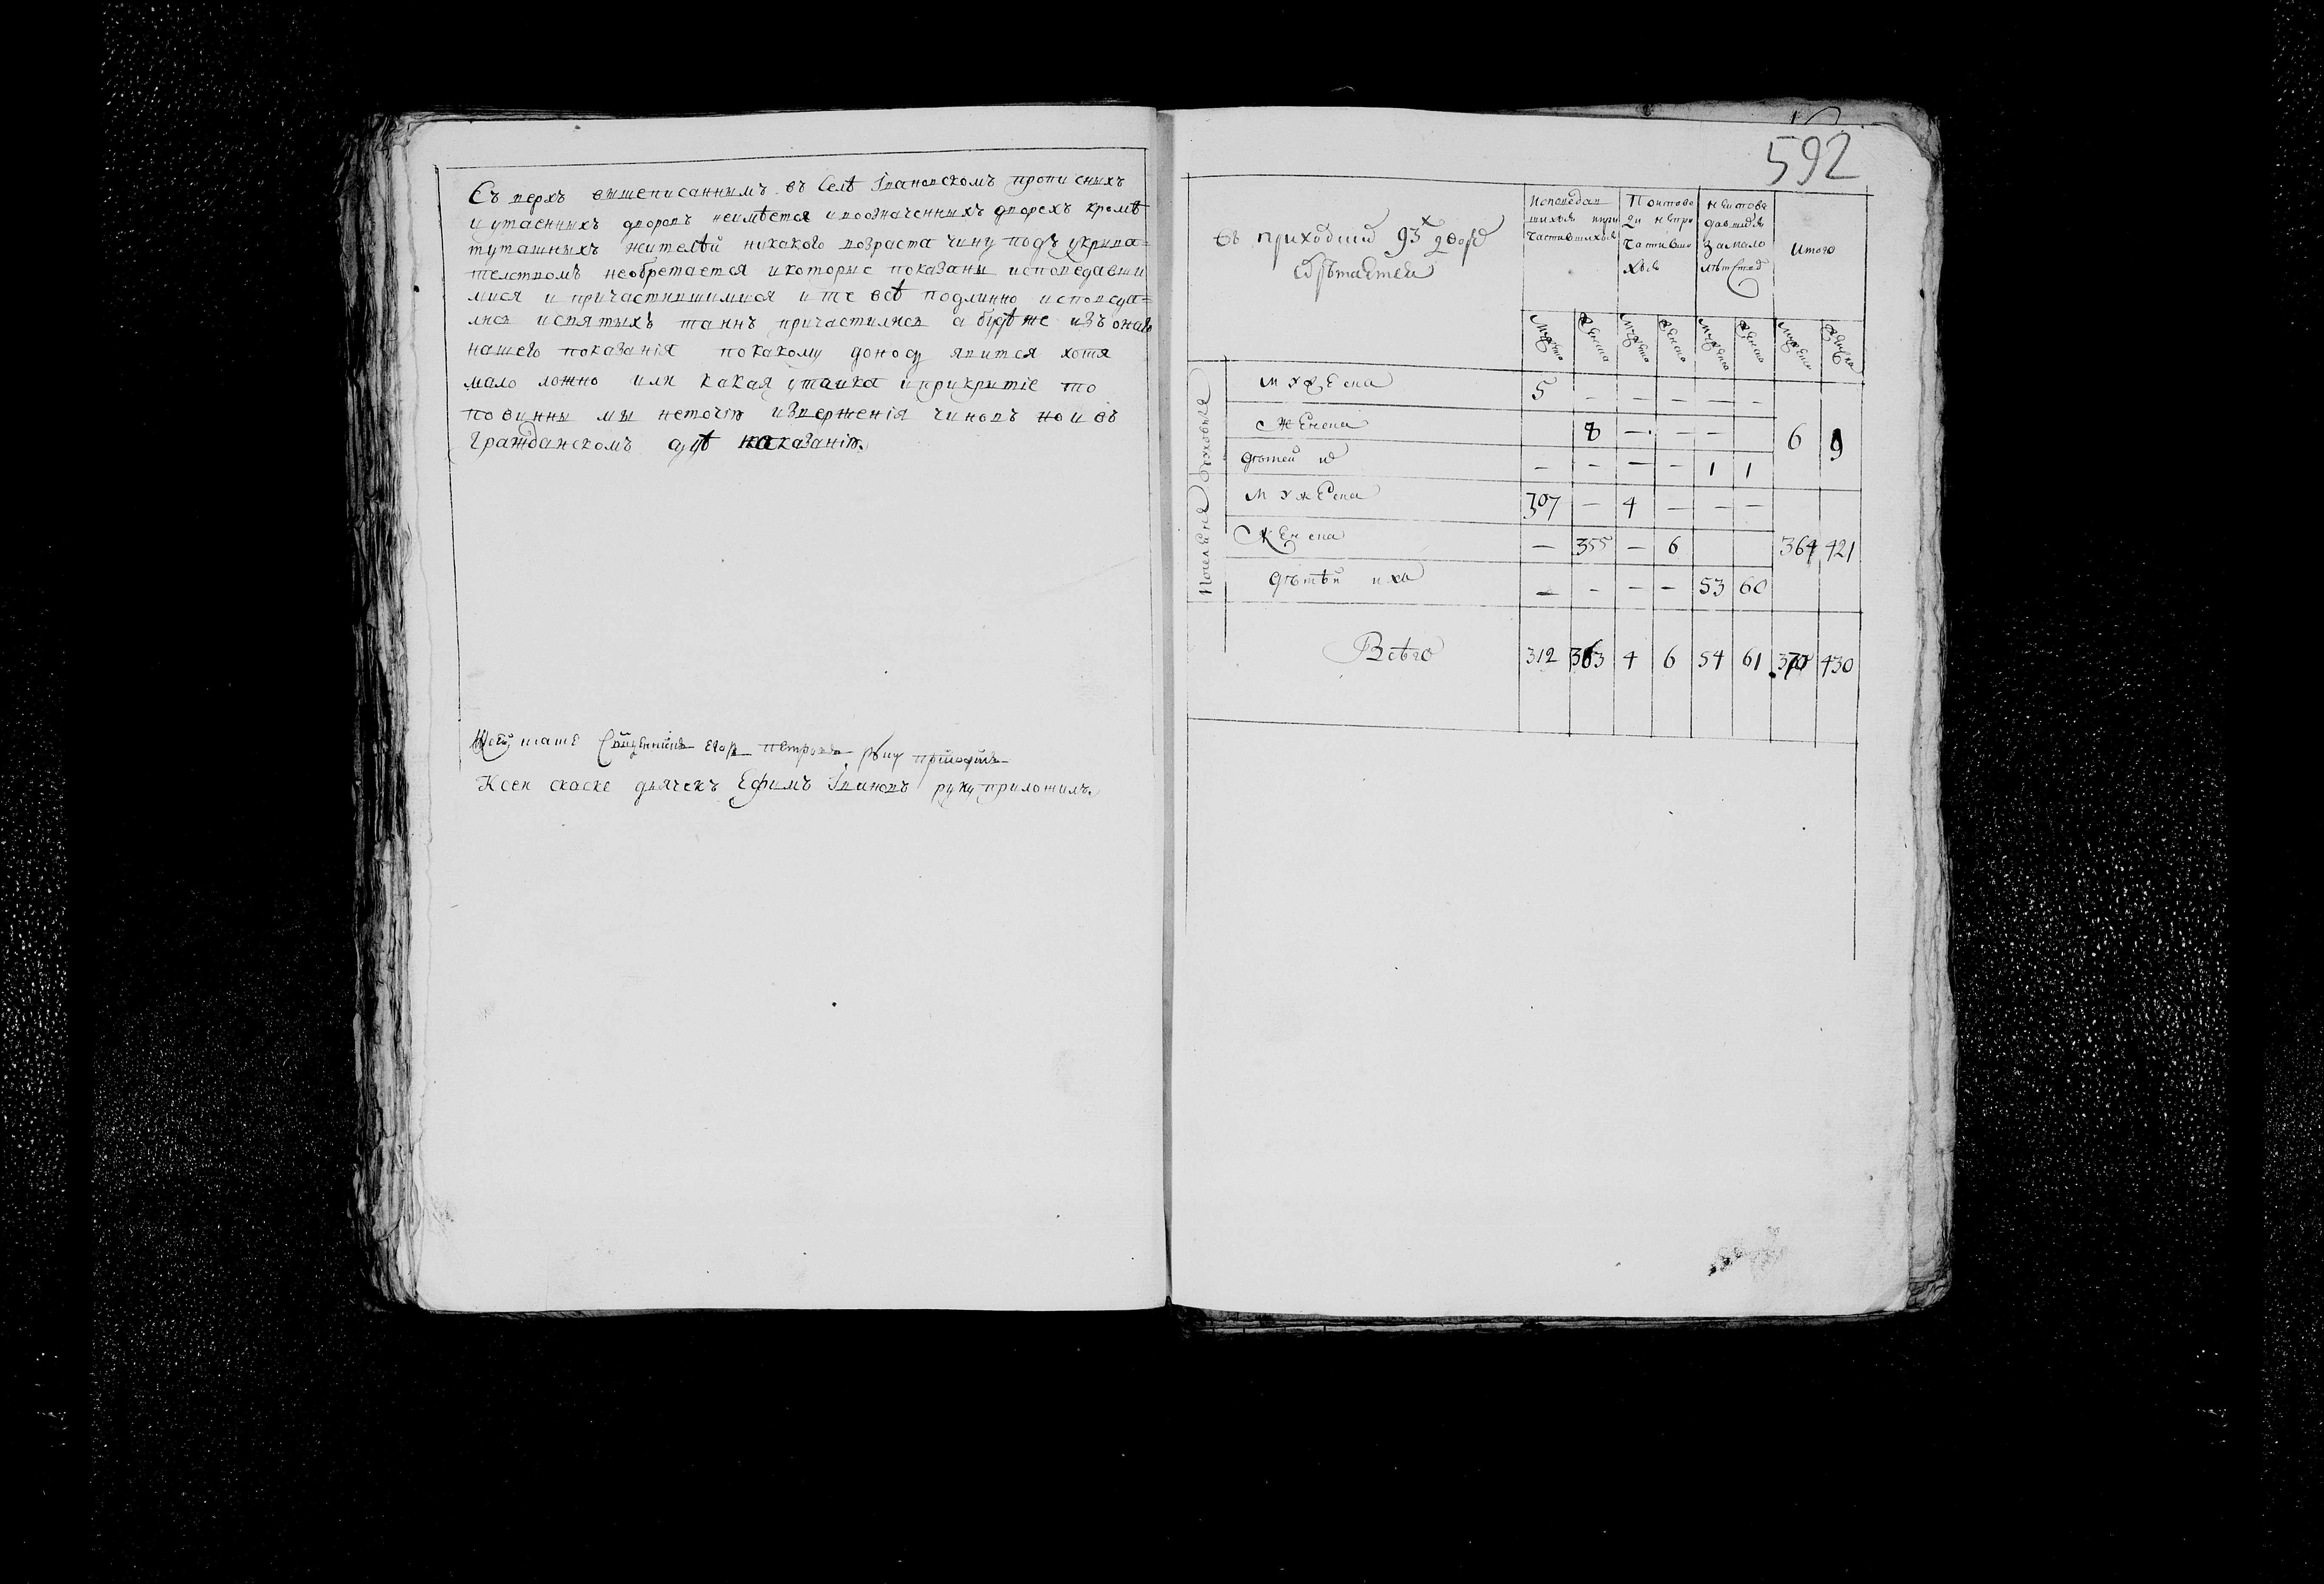 Съ верхъ вышеписаннымъ въ Селѣ Ивановскомъ прописныхъ
и утаенныхъ дворовъ неимѣется ивоозначенныхъ дворехъ кромѣ
туташныхъ жителѣй никакого возраста чину подъ укрыва=
телствомъ необретается икоторые показаны исповедавши
мися и причастившимися ите всѣ подлинно исповеда=
лись исвятыхъ таинъ причастились а будѣ же изъ онаго
нашего показанія покакому доносу явится хотя
мало ложно или какая утайка иприкрытіе то
повинны мы неточію изверженія чиновъ но и въ
гражданскомъ судѣ наказанію
Петровъ руку приложилъ
Ксеи скаске дьячекъ Ефимъ Ивановъ руку приложилъ
592
въ приходе 93х дворе
Исповедав
шихся при
частившихся
По испове
ди непри
частивши
хся
неиспове
давшихся
за мало
лѣтством
Итого
мужеска женска мужеска женска мужеска женска мужеска женска
Духовныя
мужеска 5 – – – – –
женска 8 – – – 6 9
дѣтей их – – – – 1 1
мужеска 307 – 4 – – –
женска – 355 – 6 364 421
дѣтѣй ихъ – – – – 53 60
Всѣго 312 363 4 6 54 61 370 430